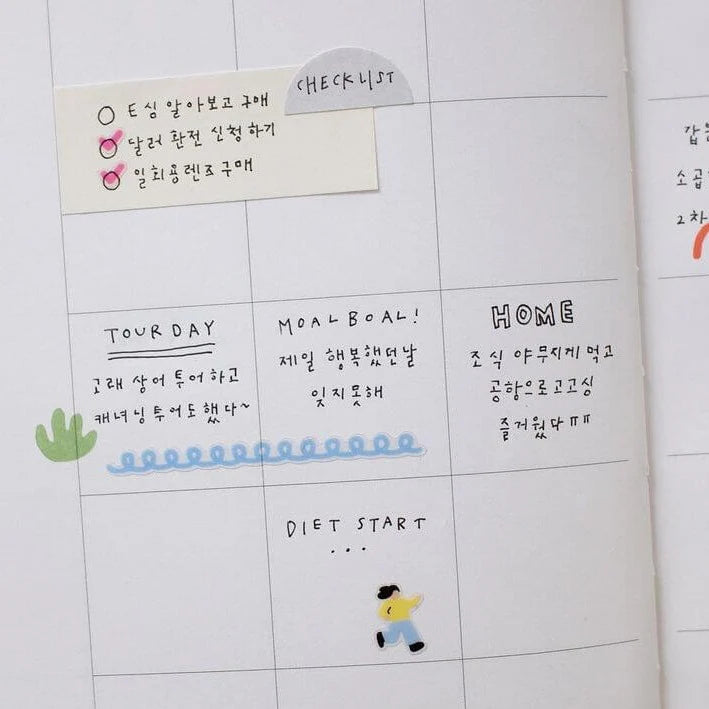 CHECKLIST
E심 알아보고 구매
달러 환전 신청하기
일회용렌즈 구매
TOUR DAY
고래상어 투어하고
캐녀닝투어도 했다~
MOALBOAL!
제일 행복했던날
잊지못해
HOME
조식 야무지게 먹고
공항으로고고싱
즐거웠다 ㅠㅠ
DIET START
...
소곱
2차